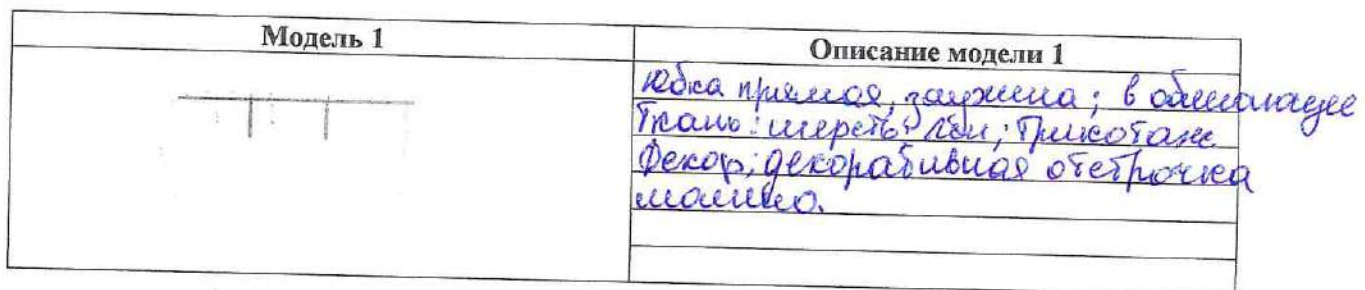 Модель 1
Описание модели 1
юбка прямая, заужена; в
Ткань: шерсть, лён; Трикотаж
Декор; декоративная отстрочка